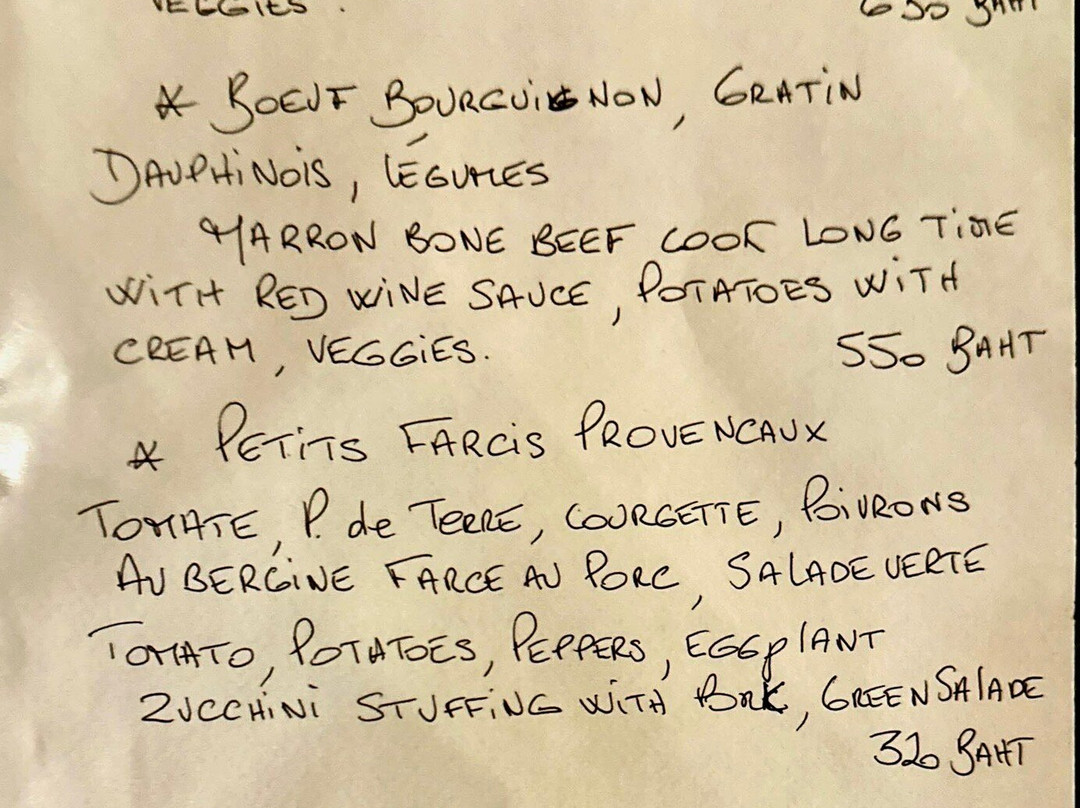 VEGGIES. 650 BAHT
* BOEUF BOURGUIGNON, GRATIN
DAUPHINOIS, LÉGUMES
MARRON BONE BEEF COOK LONG TIME
WITH RED WINE SAUCE, POTATOES WITH
CREAM, VEGGIES. 550 BAHT
* PETITS FARCIS PROVENCAUX
TOMATE, P. de TERRE, COURGETTE, POIVRONS
AUBERGINE FARCE AU PORC, SALADE VERTE
TOMATO, POTATOES, PEPPERS, EGGPLANT
ZUCCHINI STUFFING WITH PORK, GREEN SALADE
320 BAHT